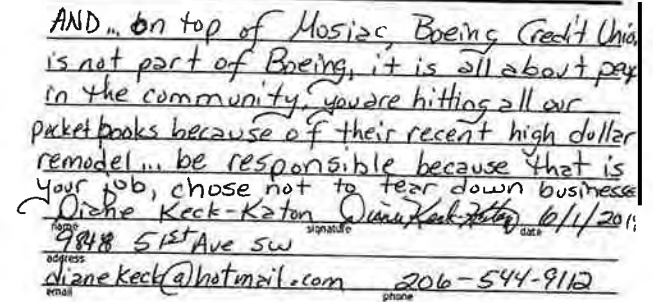 AND... on top of Mosiac, Boeing Credit Unio
is not part of Boeing, it is all about peop
in the community, you are hitting all our
pocket books because of their recent high dollar
remodel... be responsible because that is
your job, chose not to tear down businesse
Diane Keck-Katon Diane Keck-Katon 10/1/201
name signature date
9848 51st Ave SW
address
dianekeck@hotmail.com 206-544-9112
email phone